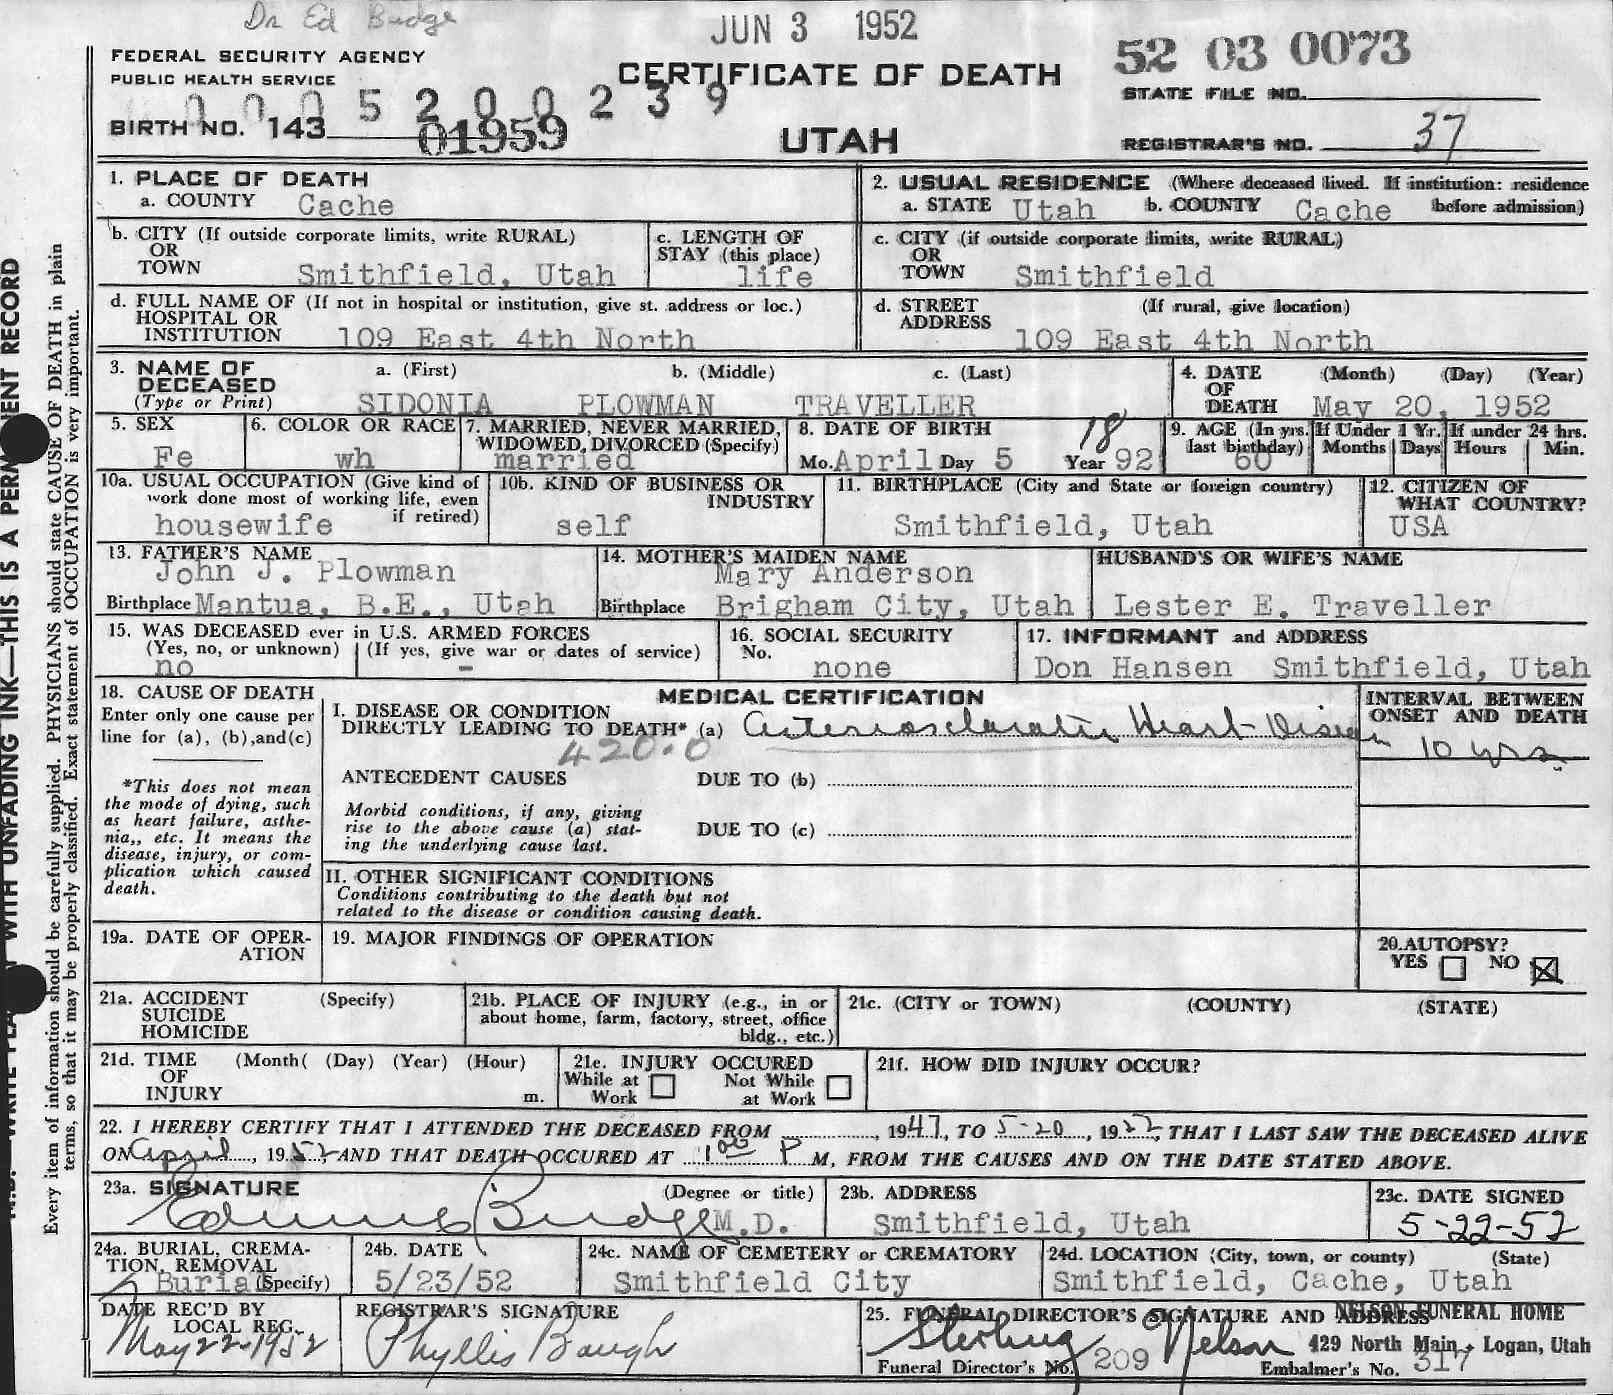 Dr Ed Budge
JUN 3 1952
52 03 0073
FEDERAL SECURITY AGENCY
PUBLIC HEALTH SERVICE
CERTIFICATE OF DEATH
STATE FILE NO.
0 0 0 5 2 0 0 2 3 9
BIRTH NO. 143 01959
UTAH
REGISTRAR'S NO. 37
1. PLACE OF DEATH
a. COUNTY Cache
2. USUAL RESIDENCE (Where deceased lived. If institution: residence
a. STATE Utah b. COUNTY Cache before admission)
b. CITY (If outside corporate limits, write RURAL)
OR
TOWN Smithfield, Utah
c. LENGTH OF
STAY (this place)
life
c. CITY (if outside corporate limits, write RURAL)
OR
TOWN Smithfield
d. FULL NAME OF (If not in hospital or institution, give st. address or loc.)
HOSPITAL OR
INSTITUTION 109 East 4th North
d. STREET (If rural, give location)
ADDRESS
109 East 4th North
3. NAME OF a. (First) b. (Middle) c. (Last)
DECEASED
(Type or Print) SIDONIA PLOWMAN TRAVELLER
4. DATE (Month) (Day) (Year)
OF
DEATH May 20, 1952
5. SEX
Fe
6. COLOR OR RACE
wh
7. MARRIED, NEVER MARRIED,
WIDOWED, DIVORCED (Specify)
married
8. DATE OF BIRTH 18
Mo. April Day 5 Year 92
9. AGE (In yrs.
last birthday)
60
If Under 1 Yr.
Months Days
If under 24 hrs.
Hours Min.
10a. USUAL OCCUPATION (Give kind of
work done most of working life, even
if retired)
housewife
10b. KIND OF BUSINESS OR
INDUSTRY
self
11. BIRTHPLACE (City and State or foreign country)
Smithfield, Utah
12. CITIZEN OF
WHAT COUNTRY?
USA
13. FATHER'S NAME
John J. Plowman
Birthplace Mantua, B.E., Utah
14. MOTHER'S MAIDEN NAME
Mary Anderson
Birthplace Brigham City, Utah
HUSBAND'S OR WIFE'S NAME
Lester E. Traveller
15. WAS DECEASED ever in U.S. ARMED FORCES
(Yes, no, or unknown) (If yes, give war or dates of service)
no -
16. SOCIAL SECURITY
No.
none
17. INFORMANT and ADDRESS
Don Hansen Smithfield, Utah
18. CAUSE OF DEATH
Enter only one cause per
line for (a), (b),and(c)
*This does not mean
the mode of dying, such
as heart failure, asthe-
nia,, etc. It means the
disease, injury, or com-
plication which caused
death.
MEDICAL CERTIFICATION
I. DISEASE OR CONDITION
DIRECTLY LEADING TO DEATH* (a) Arteriosclerotic Heart Disease
420.0
ANTECEDENT CAUSES DUE TO (b)
Morbid conditions, if any, giving
rise to the above cause (a) stat-
ing the underlying cause last.
DUE TO (c)
II. OTHER SIGNIFICANT CONDITIONS
Conditions contributing to the death but not
related to the disease or condition causing death.
INTERVAL BETWEEN
ONSET AND DEATH
10 yrs
19a. DATE OF OPER-
ATION
19. MAJOR FINDINGS OF OPERATION
20. AUTOPSY?
YES NO
21a. ACCIDENT (Specify)
SUICIDE
HOMICIDE
21b. PLACE OF INJURY (e.g., in or
about home, farm, factory, street, office
bldg., etc.)
21c. (CITY or TOWN) (COUNTY) (STATE)
21d. TIME (Month( (Day) (Year) (Hour)
OF
INJURY m.
21e. INJURY OCCURED
While at Not While
Work at Work
21f. HOW DID INJURY OCCUR?
22. I HEREBY CERTIFY THAT I ATTENDED THE DECEASED FROM , 1947, TO 5-20, 1952, THAT I LAST SAW THE DECEASED ALIVE
ON April, 1952, AND THAT DEATH OCCURED AT 1 00 P M, FROM THE CAUSES AND ON THE DATE STATED ABOVE.
23a. SIGNATURE (Degree or title)
Budge M.D.
23b. ADDRESS
Smithfield, Utah
23c. DATE SIGNED
5-22-52
24a. BURIAL, CREMA-
TION, REMOVAL
Burial (Specify)
24b. DATE
5/23/52
24c. NAME OF CEMETERY or CREMATORY
Smithfield City
24d. LOCATION (City, town, or county) (State)
Smithfield, Cache, Utah
DATE REC'D BY
LOCAL REG.
May 22-1952
REGISTRAR'S SIGNATURE
Phyllis Baugh
25. FUNERAL DIRECTOR'S SIGNATURE AND ADDRESS NELSON FUNERAL HOME
Sterling Nelson 429 North Main - Logan, Utah
Funeral Director's No. 209 Embalmer's No. 317
N.B. WRITE PLAINLY WITH UNFADING INK—THIS IS A PERMANENT RECORD
Every item of information should be carefully supplied. PHYSICIANS should state CAUSE OF DEATH in plain
terms, so that it may be properly classified. Exact statement of OCCUPATION is very important.